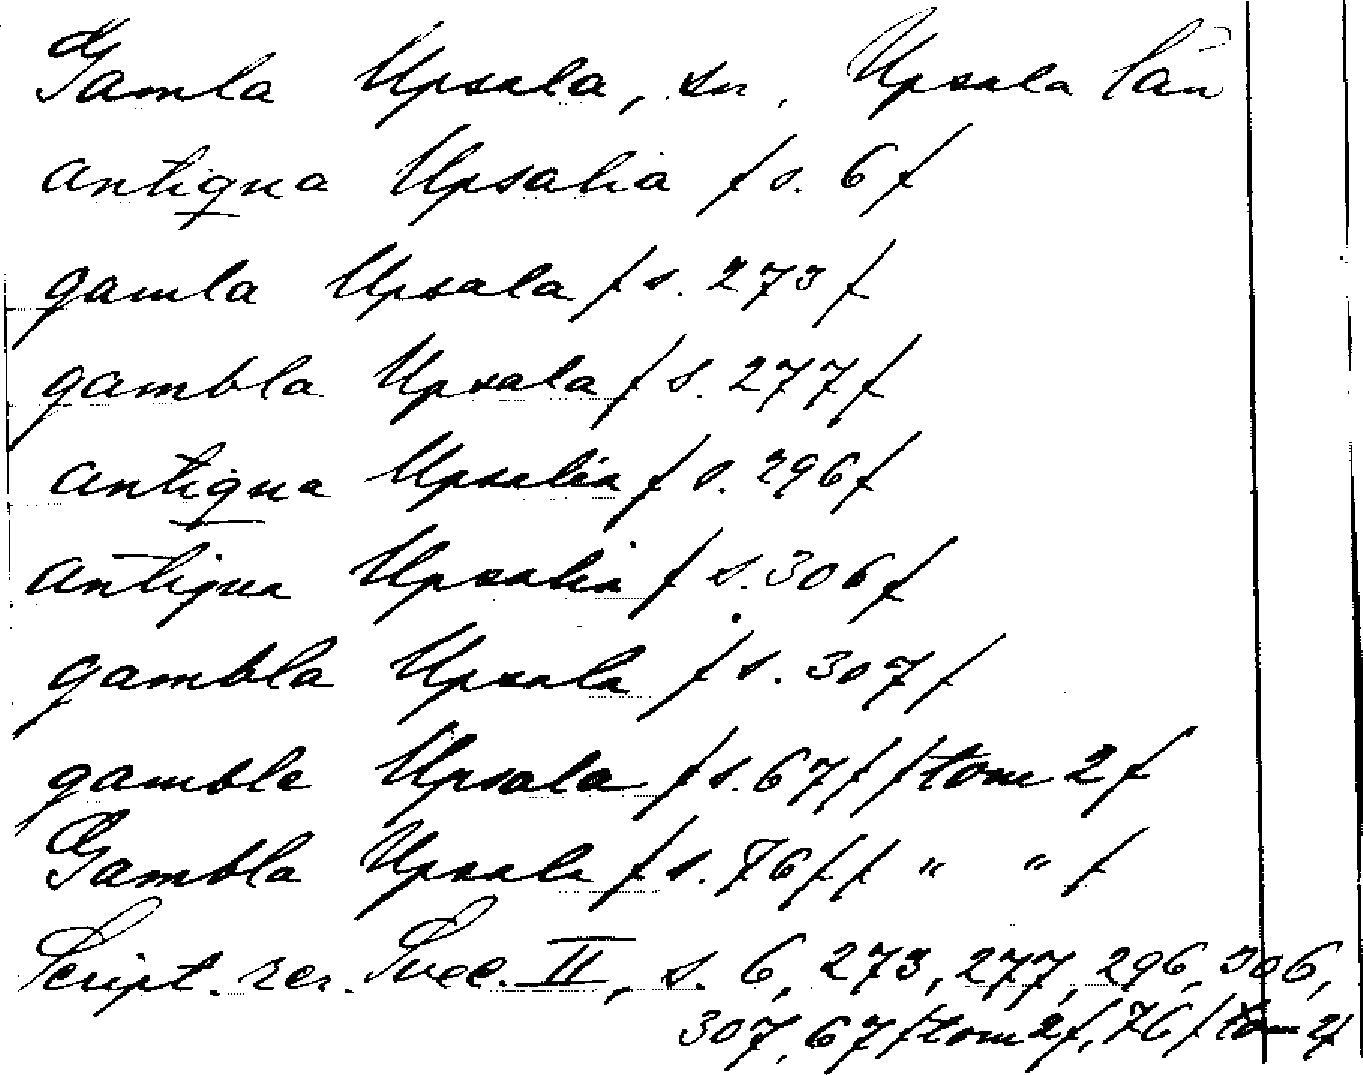 Gamla Upsala, sn, Upsala län
antiqua Upsalia / s. 6 /
gamla Upsala / s. 273 /
gambla Upsala / s. 277 /
antiqua Upsalia / s. 296 /
antiqua Upsalia / s. 306 /
gambla Upsala / s. 307 /
gamble Upsala / s. 67 / / tom 2 /
Gambla Upsala / s. 76 / / " " /
Script. rer. Svec. II, s. 6, 273, 277, 296, 306,
307, 67 / tom 2 /, 76 / tom 2 /